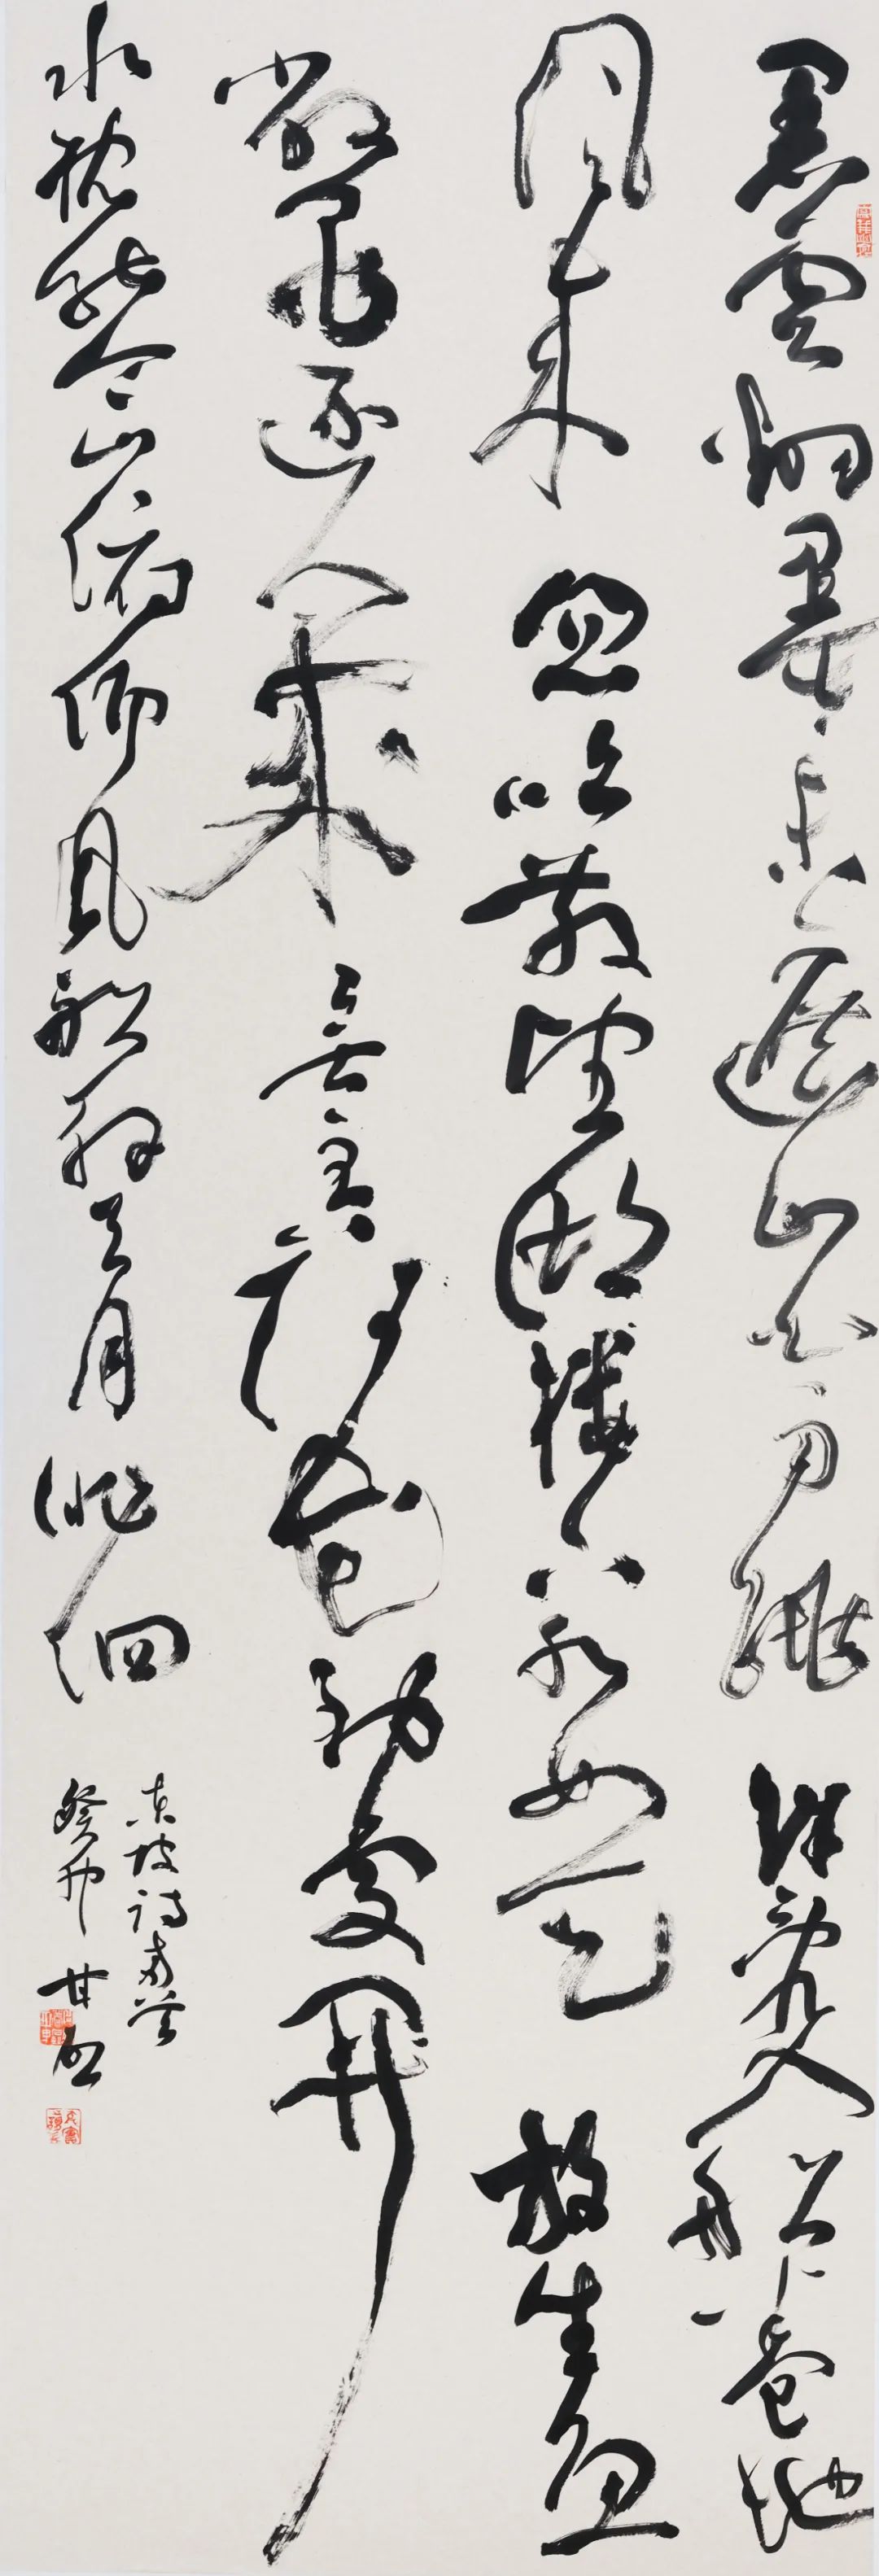 黑雲翻墨未遮山白雨跳珠亂入船卷地
風來忽吹散望湖樓下水如天放生魚
鼈逐人來無主荷花到處開
水枕能令山俯仰風船解與月徘徊
東坡詩兩首
癸卯甘